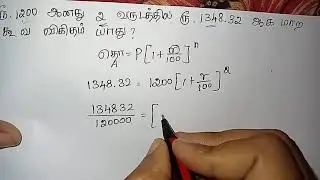 ரூ. 1200 ஆனது 2 வருடத்தில் ரூ. 1348.32 ஆக மாற
கூ.வ விகிதம் யாது?
தொகை A = P[1+r/100]^n
1348.32 = 1200[1+r/100]^2
134832/120000 = [1